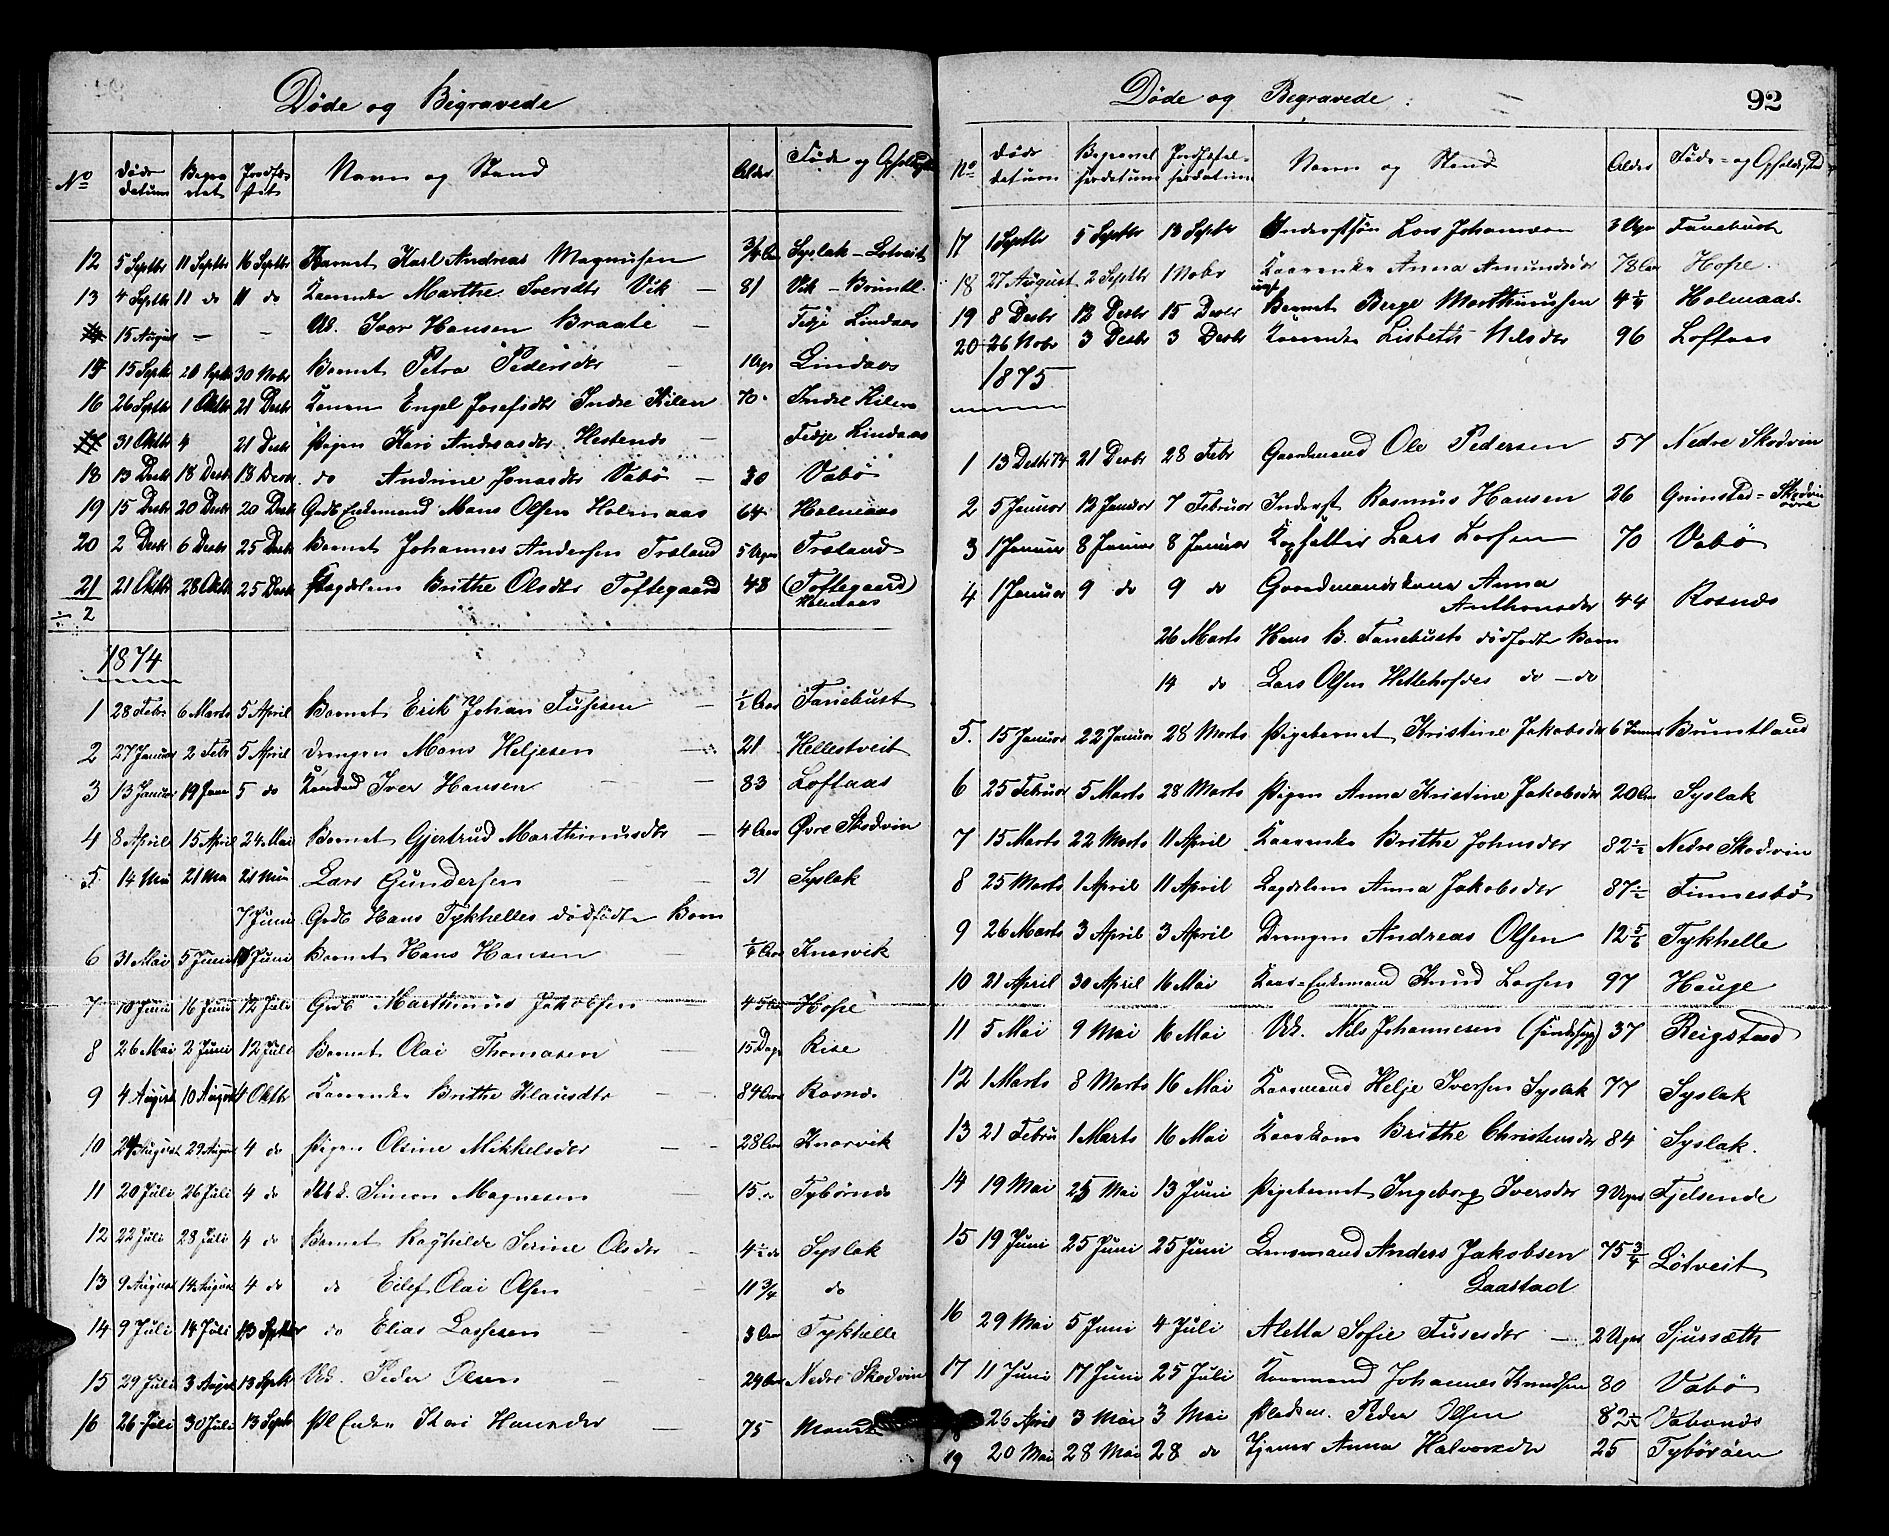 Døde og Begravede
No Døds datum Begravet Jordfæstet Navn og Stand Alder Føde og Opholdsted
12 5 Septbr 11 Septbr 16 Septbr Barnet Karl Andreas Magnusen 3/4 Aar Syslak - Løtveit
13 4 Septbr 11 do 11 do Kaarenke Marthe Iversdtr Vik — 81 Vik - Brundtl.
14 15 August — - Uk. Iver Hansen Braate — Fedje Lindaas
15 15 Septb 21 Septb 30 Nobr Barnet Petra Pedersdtr — 1 Uge Lindaas
16 26 Septbr 1 Oktbr 21 Desbr Konen Engel Josefsdtr Indre Kilen 70 Indre Kilen
17 31 Oktbr 4 21 Desbr Pigen Kari Andreasdtr Hestenes — Fedje Lindaas
18 13 Desbr 18 Desbr 18 Desbr do Andrine Jonasdtr Vabø — 30 Vabø
19 15 Desbr 20 Desbr 20 Desbr Grdb Enkemand Mons Olsen Holmaas 64 Holmaas
20 2 Desbr 6 Desbr 25 Desbr Barnet Johannes Andersen Træland 5 Uger Træland
21 21 Oktbr 28 Oktb 25 Desbr Lægdslem Brithe Olsdtr Toftegaard 48 (Toftegaard)
÷ 2 Holmaas
1874
1 28 Febr 6 Marts 5 April Barnet Erik Johan Fusesen — 1/2 Aar Fanebust
2 27 Januar 2 Febr 5 April Drengen Mons Heljesen 21 Hellestveit
3 13 Januar 19 Janu 5 do Iver Hansen 83 Loftaas
4 8 April 15 April 24 Mai Barnet Gjertrud Marthinusdtr — 4 Aar Øvre Skodvin
5 14 Mai 21 Mai 21 Mai Lars Gundersen 31 Syslak
7 Juni Grdb Hans Tykhelles dødfødte Barn
6 31 Mai 5 Juni Juni Barnet Hans Hansen Aar Knarvik
7 10 Juni 16 Juni 12 Juli Grdb Marthinus Jakobsen 45 Aar Hope
8 26 Mai 2 Juni 12 Juli Barnet Olai Thomasen 15 Dage Rise
9 4 August 10 August 4 Oktbr Kaarenke Brithe Klausdtr 84 Aar Rosnes
10 24 August 29 August 4 do Pigen Olsine Mikkelsdtr 28 Aar Knarvik
11 20 Juli 26 Juli 4 do Uk. Simon Magnesen 15 do Tybørnes
12 22 Juli 28 Juli 4 do Barnet Raghilde Serine Olsdtr 4 1/2 do Syslak
13 9 August 14 August 4 do do Eilef Olai Olsen 11 3/4 do
14 9 Juli 14 Juli 13 Septbr do Elias Lassesen 3 Aar Tykhelle
15 29 Juli 3 August 13 Septb Uk. Peder Olsen 24 Aar Nedre Skodvin
16 26 Juli 30 Juli 13 Septb Pl Enke Kari Hansdtr 75
Døde og Begravede. 92
No Døds datum Begravelsesdatum Jordfæstelsesdatum Navn og Stand Alder Føde- og Opholdssted
17 1 Septbr 5 Septbr 13 Septbr Inderstsøn Lars Johannesen 3 Uger Fanebust
18 27 August 2 Septbr 1 Nobr Kaarenke Anna Amundsdtr 78 Aar Hope.
19 8 Desbr 12 Desbr 15 Desbr Barnet Berge Marthinusen 4 1/4 Holmaas.
20 26 Nobr 3 Desbr 3 Desbr Kaarenke Lisbeth Nelsdtr 96 Loftaas
1875
1 13 Desbr 74 21 Desbr 28 Febr Gaardmand Ole Pedersen 57 Nedre Skodvin
2 5 Januar 12 Januar 7 Februar Inderst Rasmus Hansen 26 Grimstad = Skodvin øvre
3 1 Januar 8 Januar 8 Januar Lars Larsen 70 Vabø
4 1 Januar 9 do 9 do Gaardmandskone Anna
Anthonsdtr 44 Rosnes
26 Marts Hans B. Fanebusts dødfødte Barn
14 do Lars Olsen Hillehofdes do - do
5. 15 Januar 22 Januar 28 Marts Pigebarnet Kristine Jakobsdtr 6 Timer Bruntland
6 25 Februar 5 Marts 28 Marts Pigen Anna Kristine Jakobsdtr 20 Aar Syslak
7 15 Marts 22 Marts 11 April Kaarenke Brithe Johnsdtr 82 1/2 Nedre Skodvin
8 25 Marts 1 April 11 April Lægdslem Anna Jakobsdtr 87 1/2 Finnesbø
9 26 Marts 3 April 3 April Drengen Andreas Olsen 12 5/6 Tykhelle
10 21 April 30 April 16 Mai Kaar-Enkemand Knud Larsen 97 Hauge
11 5 Mai 9 Mai 16 Mai Uk. Nils Johannesen (sindssyg) 37 Reigstad
12 1 Marts 8 Marts 16 Mai Kaarmand Helje Iversen Syslak 77 Syslak
13 21 Febru 1 Marts 16 Mai Kaarkone Brithe Christensdtr 84 Syslak.
14 19 Mai 25 Mai 13 Juni Pigebarnet Ingeborg Iversdtr 9 Uger Fjelsende
15 19 Juni 25 Juni 25 Juni Lensmand Anders Jakobsen 75 3/4 Løtveit
Gaastad
16 29 Mai 5 Juni 4 Juli Aletta Sofie Fusesdtr — 2 Uger Sjursæth
17 11 Juni 17 Juni 25 Juli Kaarmand Johannes Knudsen 80 Vabø
18 26 April 3 Mai 3 Mai Pladsm. Peder Olsen 82 1/2 Vabønes
19 20 Mai 28 Mai 28 do Tjener Anna Halvorsdtr 25 Tybørøen